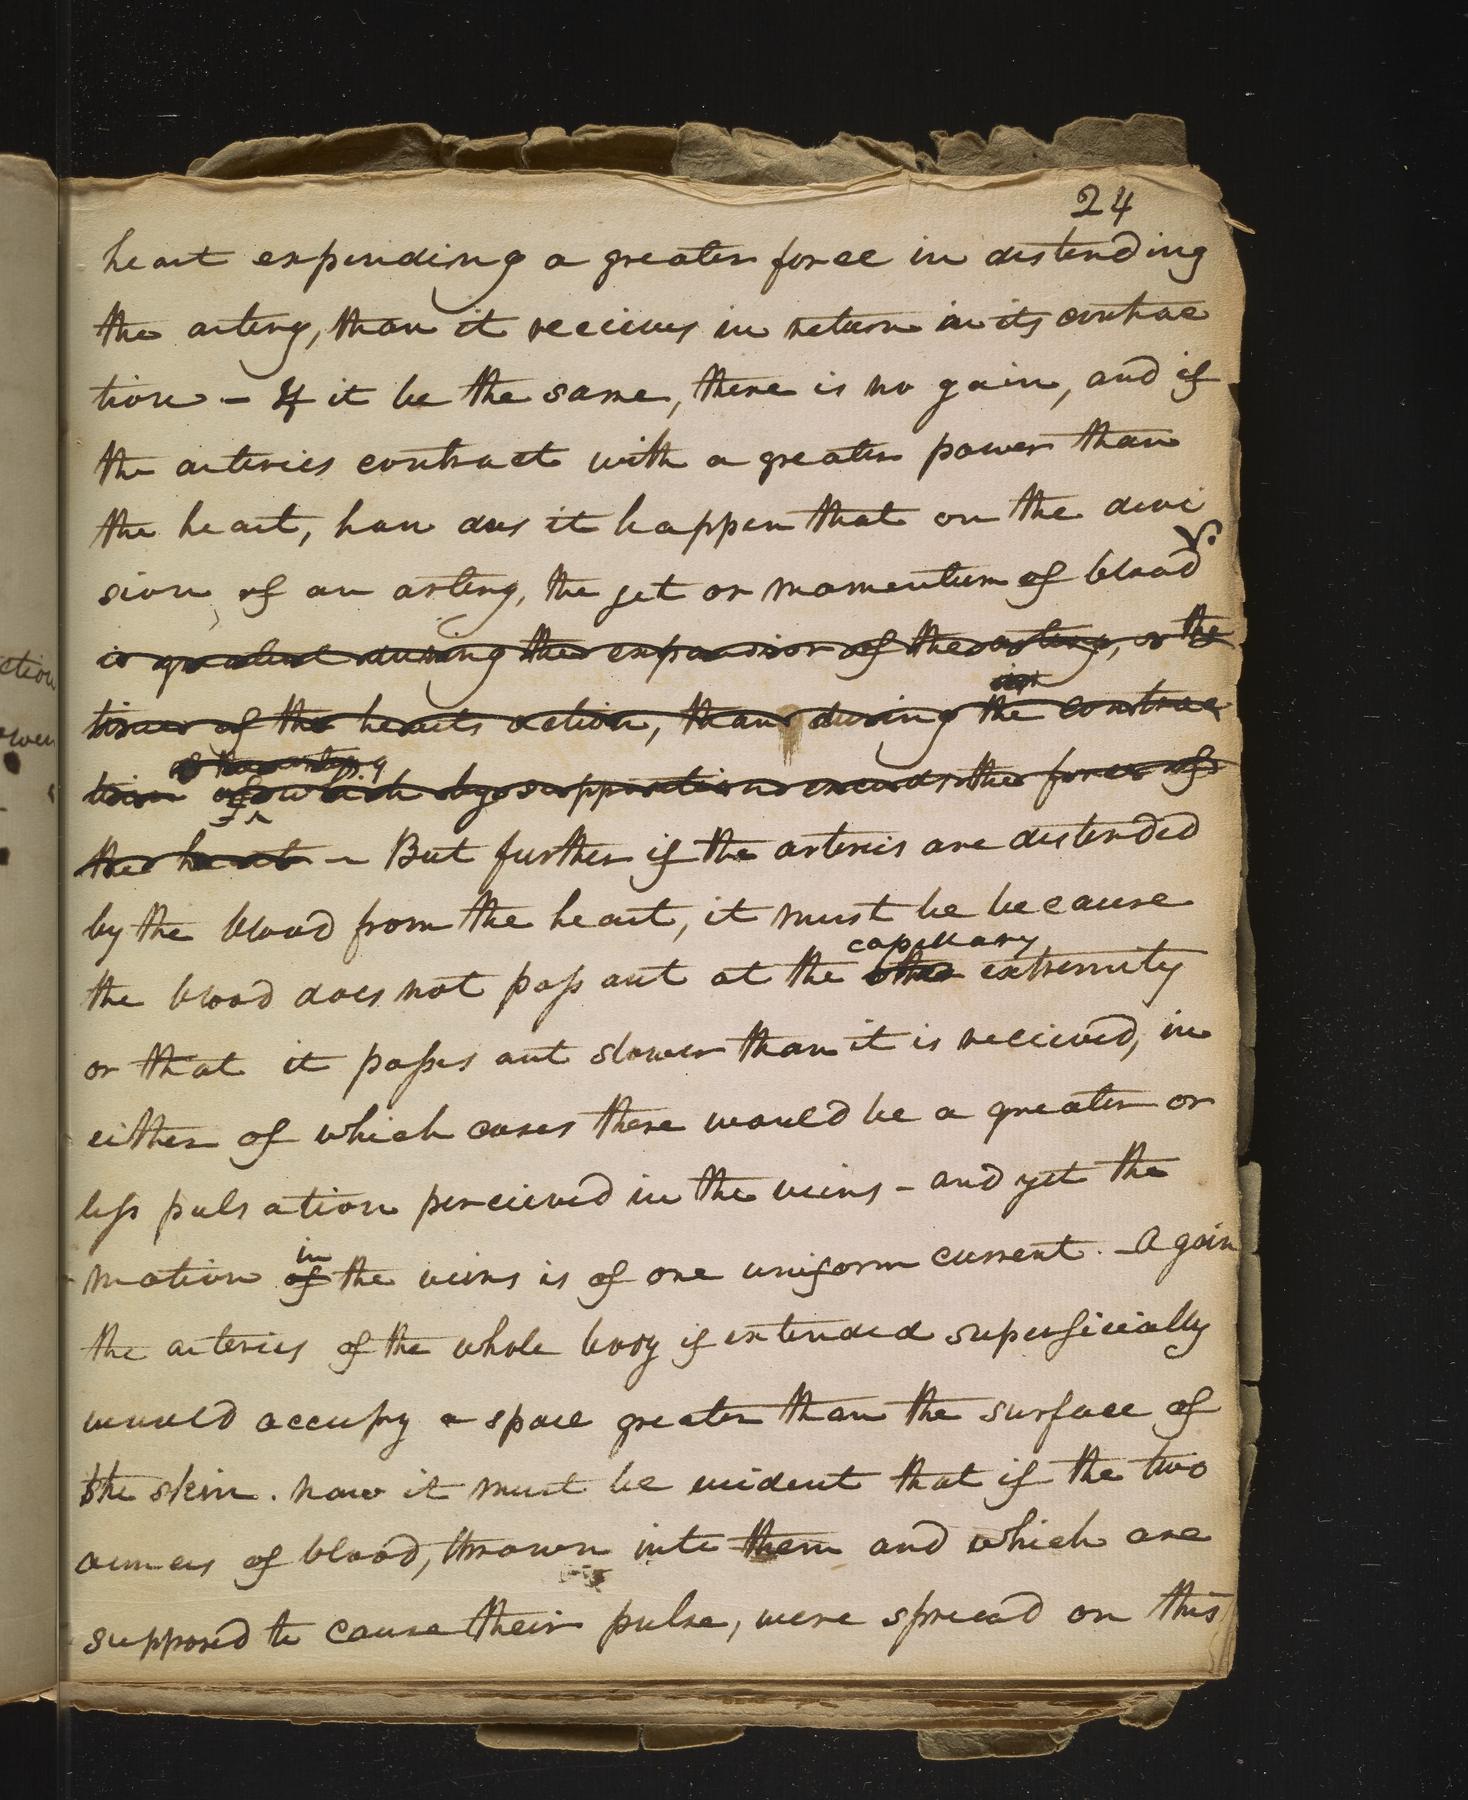 24
heart expending a greater force in distending
the artery, than it recieves in return in its contrac
tion - If it be the same, there is no gain, and if
the arteries contract with a greater power than
the heart, how does it happen that on the divi
sion of an artery, the jet or momentum of blood
is greatest during the expansion of the artery, or the
times of the hearts action, than during the contrac
of the artery
tion of which by supposition exceeds the force of
the heart - But further if the arteries are distended
by the blood from the heart, it must be because
capillary
the blood does not pass out at the other extremity
or that it passes out slower than it is recieved, in
either of which cases there would be a greater or
less pulsation percieved in the veins - and yet the
in
motion of the veins is of one uniform current. - Again
the arteries of the whole body if extended superficially
would occupy a space greater than the surface of
the skin. now it must be evident that if the two
ounces of blood, thrown into them and which are
supposed to cause their pulse, were spread on this
ction